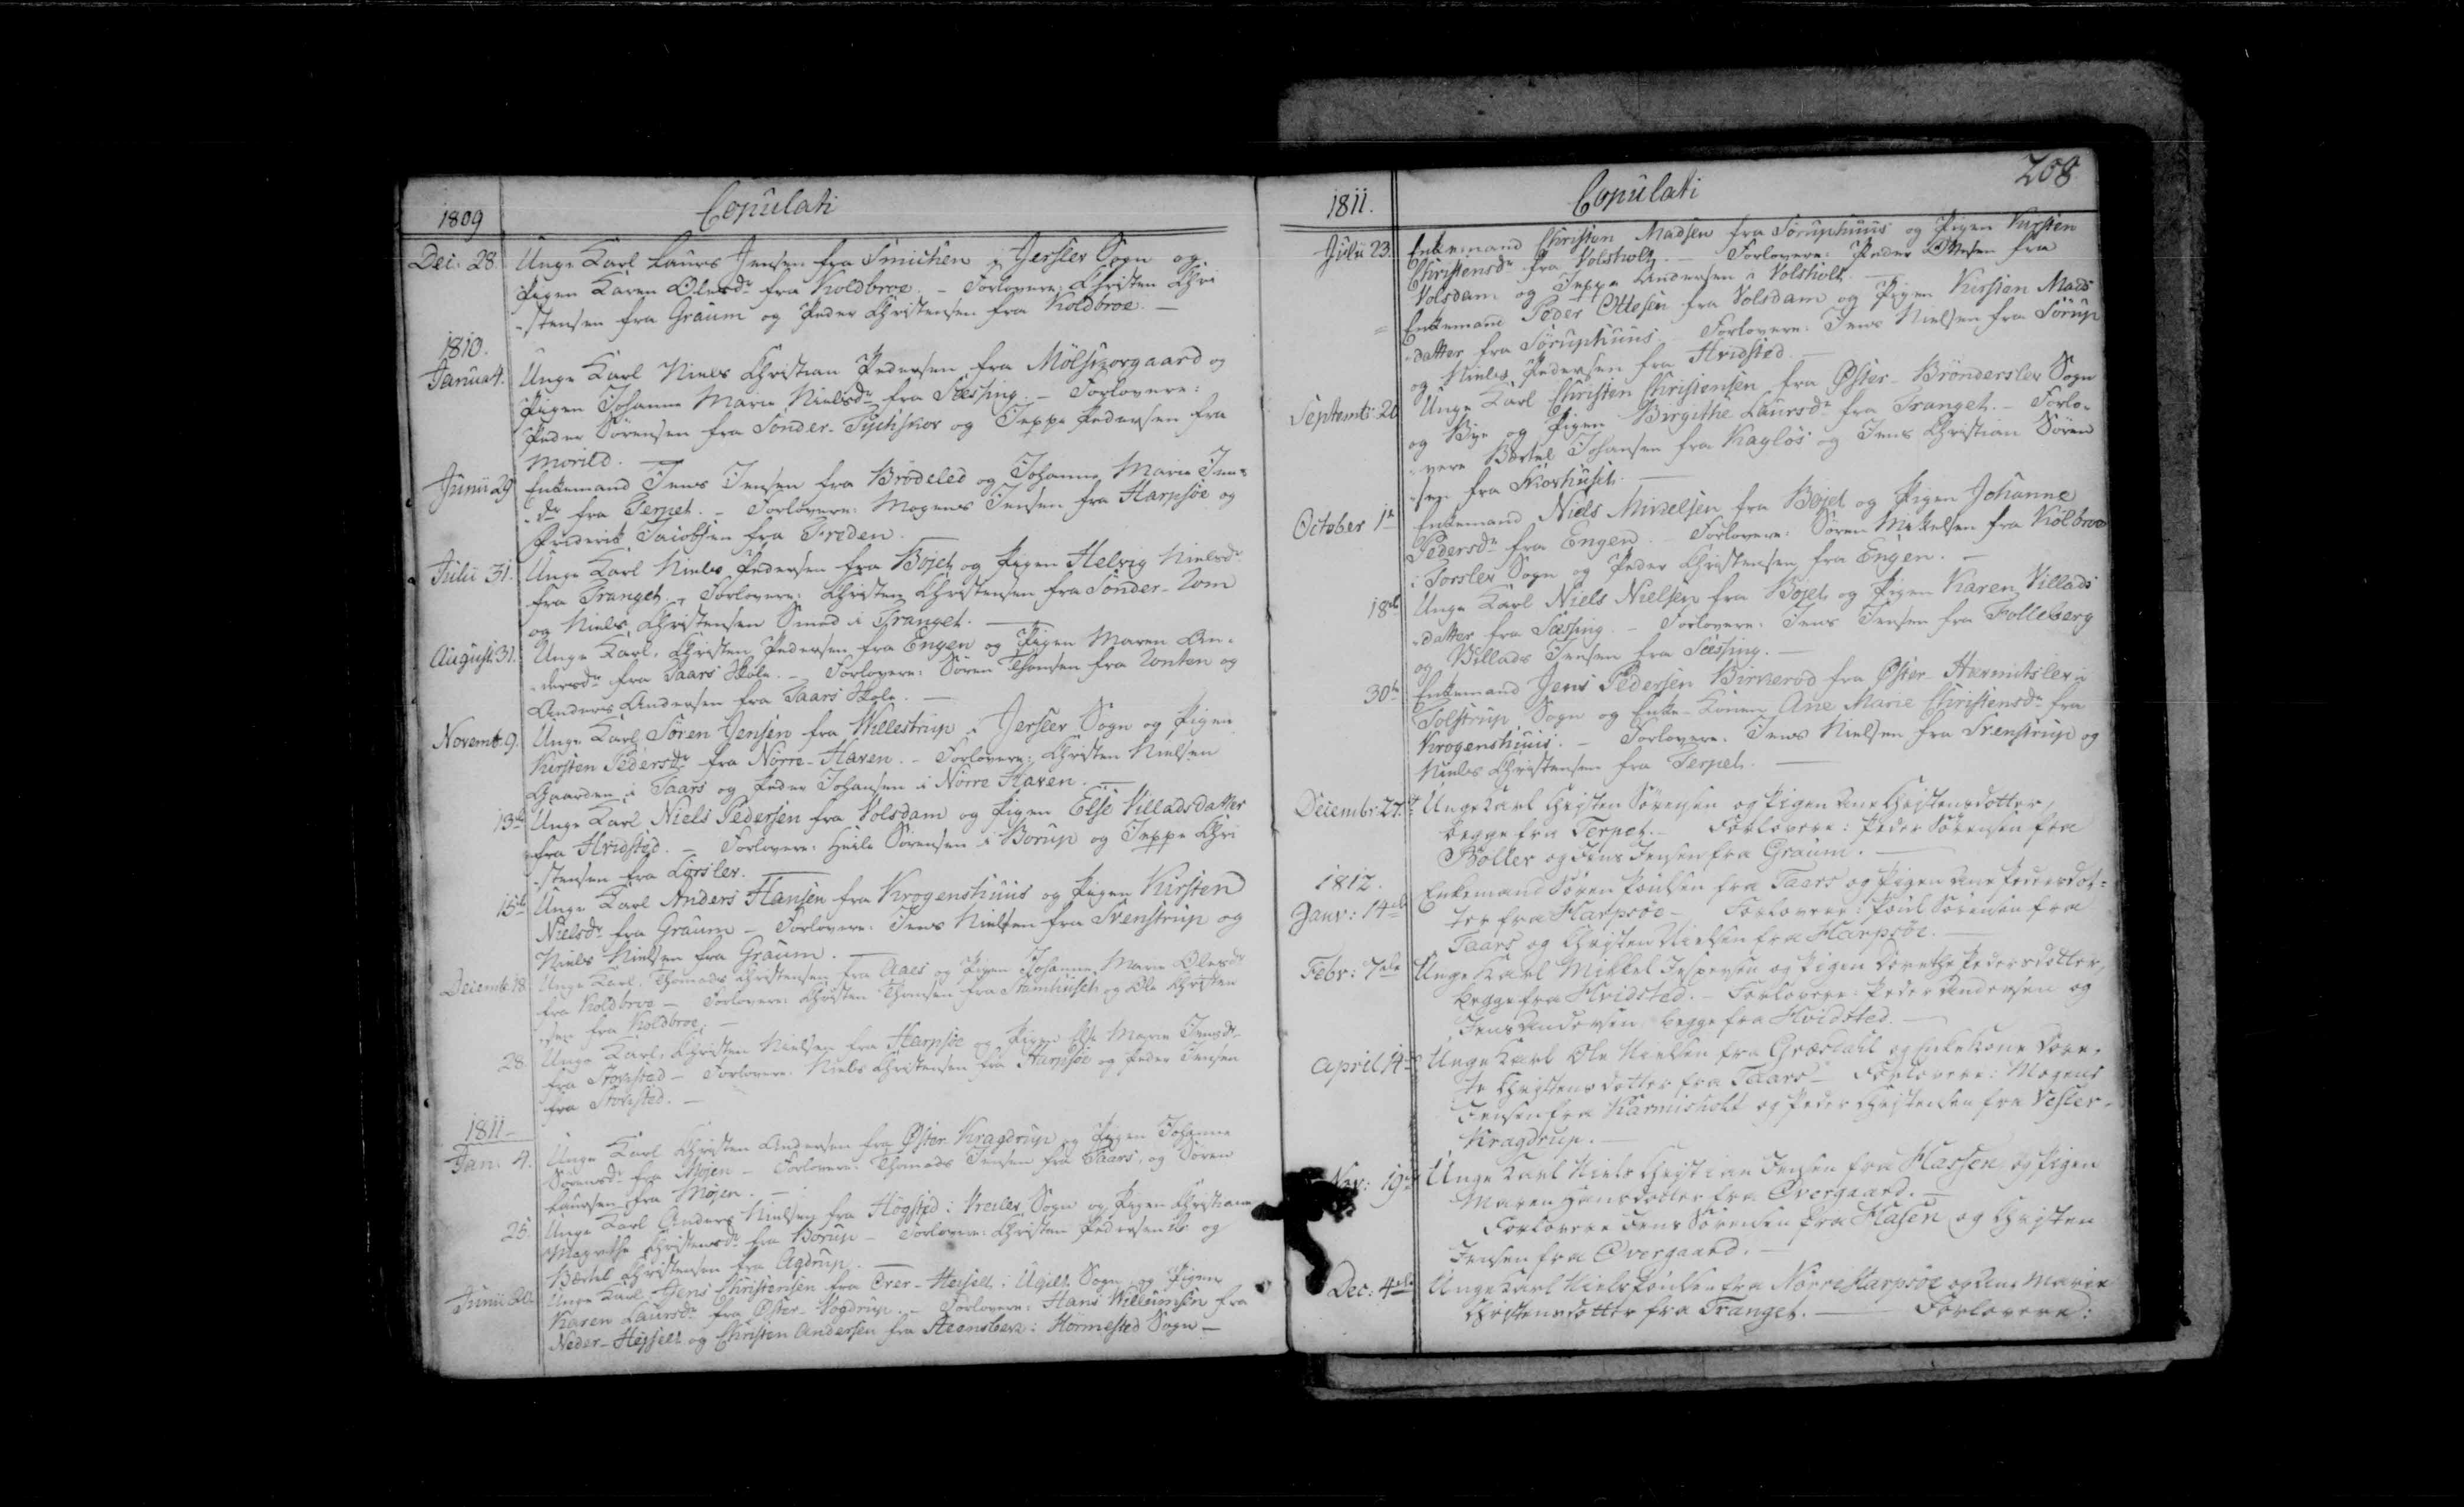 1809
Copulati
Dec: 28. Unge Karl Laurs Jensen fra Smichen i Jerslev Sogn og
Pigen Karen Olesdr fra Koldbroe. - Forlovere: Christen Chri
-stensen fra Graum og Peder Christensen fra Koldbroe. -
1810.
Janua 4. Unge Karl Niels Christian Pedersen fra Mölskorgaard og
Pigen Johanne Marie Nielsdr fra Sæsing. - Forlovere:
Peder Sörensen fra Sönder- og Jeppe Pedersen fra
Morild. -
Junii 29 Enkemand Jens Jensen fra Brödeled og Johanne Marie Jens
-dr fra Terpet. - Forlovere: Mogens Jensen fra Harpsöe og
Friderik Jacobsen fra Freden.
Julii 31. Unge Karl Niels Pedersen fra Böjet og Pigen Helvig Nielsdr
fra Tranget. - Forlovere: Christen Christensen fra Sönder-Tom
og Niels Christensen Smed i Tranget. -
August: 31. Unge Karl Christen Pedersen fra Engen og Pigen Maren An-
-dersdr fra Taars Skole. - Forlovere: Sören Thomsen fra og
Anders Andersen fra Taars Skole. -
Novemb: 9. Unge Karl Sören Jensen fra Willestrup i Jerslev Sogn og Pigen
Kirsten Pedersdr fra Nörre-Haven. - Forlovere: Christen Nielsen
Gaarden i Taars og Peder Johansen i Nörre Haven. -
13de Unge Karl Niels Pedersen fra Volsdam og Pigen Else Villadsdatter
fra Hvidsted. - Forlovere: Sörensen i Borup og Jeppe Chri
-stensen fra Lörslev. -
15de Unge Karl Anders Hansen fra Krogenshuus og Pigen Kirsten
Nielsdr fra Graum - Forlovere: Jens Nielsen fra Svenstrup og
Niels Nielsen fra Graum. -
Decemb: 18 Unge Karl Thomas Christensen fra Aaes og Pigen Johanne Marie Olesdr
fra Koldbroe - Forlovere: Christen Thomsen fra og Ole Christen
-sen fra Koldbroe. -
28. Unge Karl Christen Nielsen fra Harpsöe og Pigen Else Marie Jensdr
fra Stovsted - Forlovere: Niels Christensen fra Harpsöe og Peder Jensen
fra Stovsted. -
1811 -
Jan: 4. Unge Karl Christen Andersen fra Öster Kragdrup og Pigen Johanne
Sörensdr fra Mojen - Forlovere: Thomas Jensen fra Taars, og Sören
Laursen fra Mojen. -
25. Unge Karl Anders Nielsen fra Högsted i Vreilev Sogn og Pigen Christiane
Magrethe Christensdr fra Borup - Forlovere: Christen Pedersen og
Bertel Christensen fra Agdrup. -
Junii 20. Unge Karl Jens Christensen fra Over-Hejselt i Ugilt Sogn og Pigen
Karen Laursdr fra Öster-Vogdrup. - Forlovere: Hans Willumsen fra
Neder-Hejselt og Christen Andersen fra i Hormested Sogn -
1811.
Copulati
208
Julii 23. Enkemand Christen Madsen fra Söruphuus og Pigen Kirsten
Christensdr fra Volsholt. - Forlovere: Peder Ottesen fra
Volsdam og Jeppe Andersen i Volsholt. -
= Enkemand Peder Ottesen fra Volsdam og Pigen Kirsten Mads
-datter fra Söruphuus. Forlovere: Jens Nielsen fra Sörup
og Niels Pedersen fra Hvidsted. -
Septemb: 20 Unge Karl Christen Christensen fra Öster-Brönderslev Sogn
og Bye og Pigen Birgithe Laursdr fra Tranget. - Forlo-
-vere Bertel Johansen fra Kaglös og Jens Christian Sören
-sen fra Skovhuset. -
October 1te Enkemand Niels Mickelsen fra Böjet og Pigen Johanne
Pedersdr fra Engen. - Forlovere: Sören Mikelsen fra Kölbroe
i Torslev Sogn og Peder Christensen fra Engen. -
18de Unge Karl Niels Nielsen fra Böjet og Pigen Karen Villads
-datter fra Sæsing. - Forlovere: Jens Jensen fra Folleberg
og Villads Jensen fra Sæsing. -
30te Enkemand Jens Pedersen Birkerod fra Öster-Hærmitslev i
Tolstrup Sogn og Enke-Konen Ane Marie Christensdr fra
Krogenshuus. - Forlovere: Jens Nielsen fra Svenstrup og
Niels Christensen fra Terpet. -
Decembr: 27. Unge Karl Christen Sörensen og Pigen Ane Christensdotter,
begge fra Terpet. - Forlovere: Peder Sörensen fra
Boller og Jens Jensen fra Graum. -
1812.
Janv: 14de Enkemand Sören Poulsen fra Taars og Pigen Ane Pedersdot=
ter fra Harpsöe - Forlovere: Poul Sörensen fra
Taars og Christen Nielsen fra Harpsöe. -
Febr: 7de Unge Karl Mikkel Jespersen og Pigen Dorethe Pedersdotter,
begge fra Hvidsted. - Forlovere: Peder Andersen og
Jens Andersen begge fra Hvidsted. -
April 14de Unge Karl Ole Nielsen fra Græsdahl og Enkekone Dore-
te Christensdotter fra Taars - Forlovere: Mogens
Jensen fra Karmisholt og Peder Christensen fra Vester-
Kragdrup. -
Nov: 19de Unge Karl Niels Christian Jensen fra Hassen og Pigen
Maren Hansdotter fra Overgaard. -
Forlovere Jens Sörensen fra Hasen og Christen
Jensen fra Overgaard. -
Dec: 4de Unge Karl Niels Poulsen fra Nörre Harpsöe og Ane Marie
Christensdotter fra Tranget. - Forlovere: